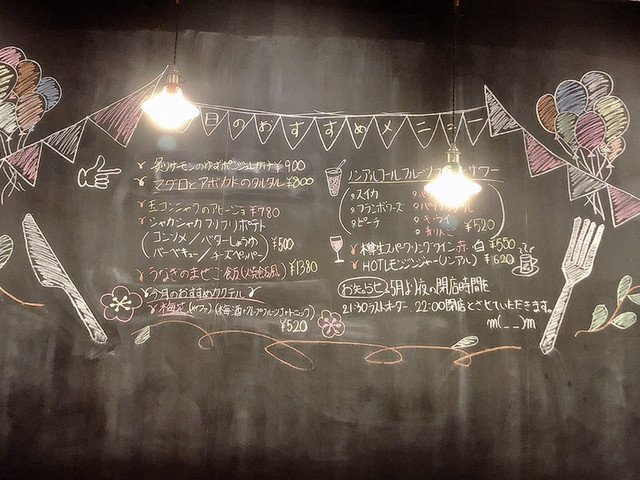 日のおすすめメニュー
炙りサーモンのゆずポンジュレがけ ¥900
マグロとアボカドのタルタル ¥800
玉コンニャクのアヒージョ ¥780
シャカシャカフリフリポテト
(コンソメ/バターしょうゆ
バーベキュー/チーズペッパー) ¥500
うなぎのまぜご飯 ¥1380
今月のおすすめカクテル
梅花 (梅酒・グレープフルーツ・トニック)
¥520
ノンアルコールフルーツ サワー
スイカ
フランボワーズ
ピーチ
キウイ
¥520
樽生スパークリングワイン 赤・白 ¥550
HOTレモンジンジャー(ノンアル) ¥620
お知らせ 5月以後の閉店時間を
21:30ラストオーダー 22:00閉店とさせていただきます。
m(__)m